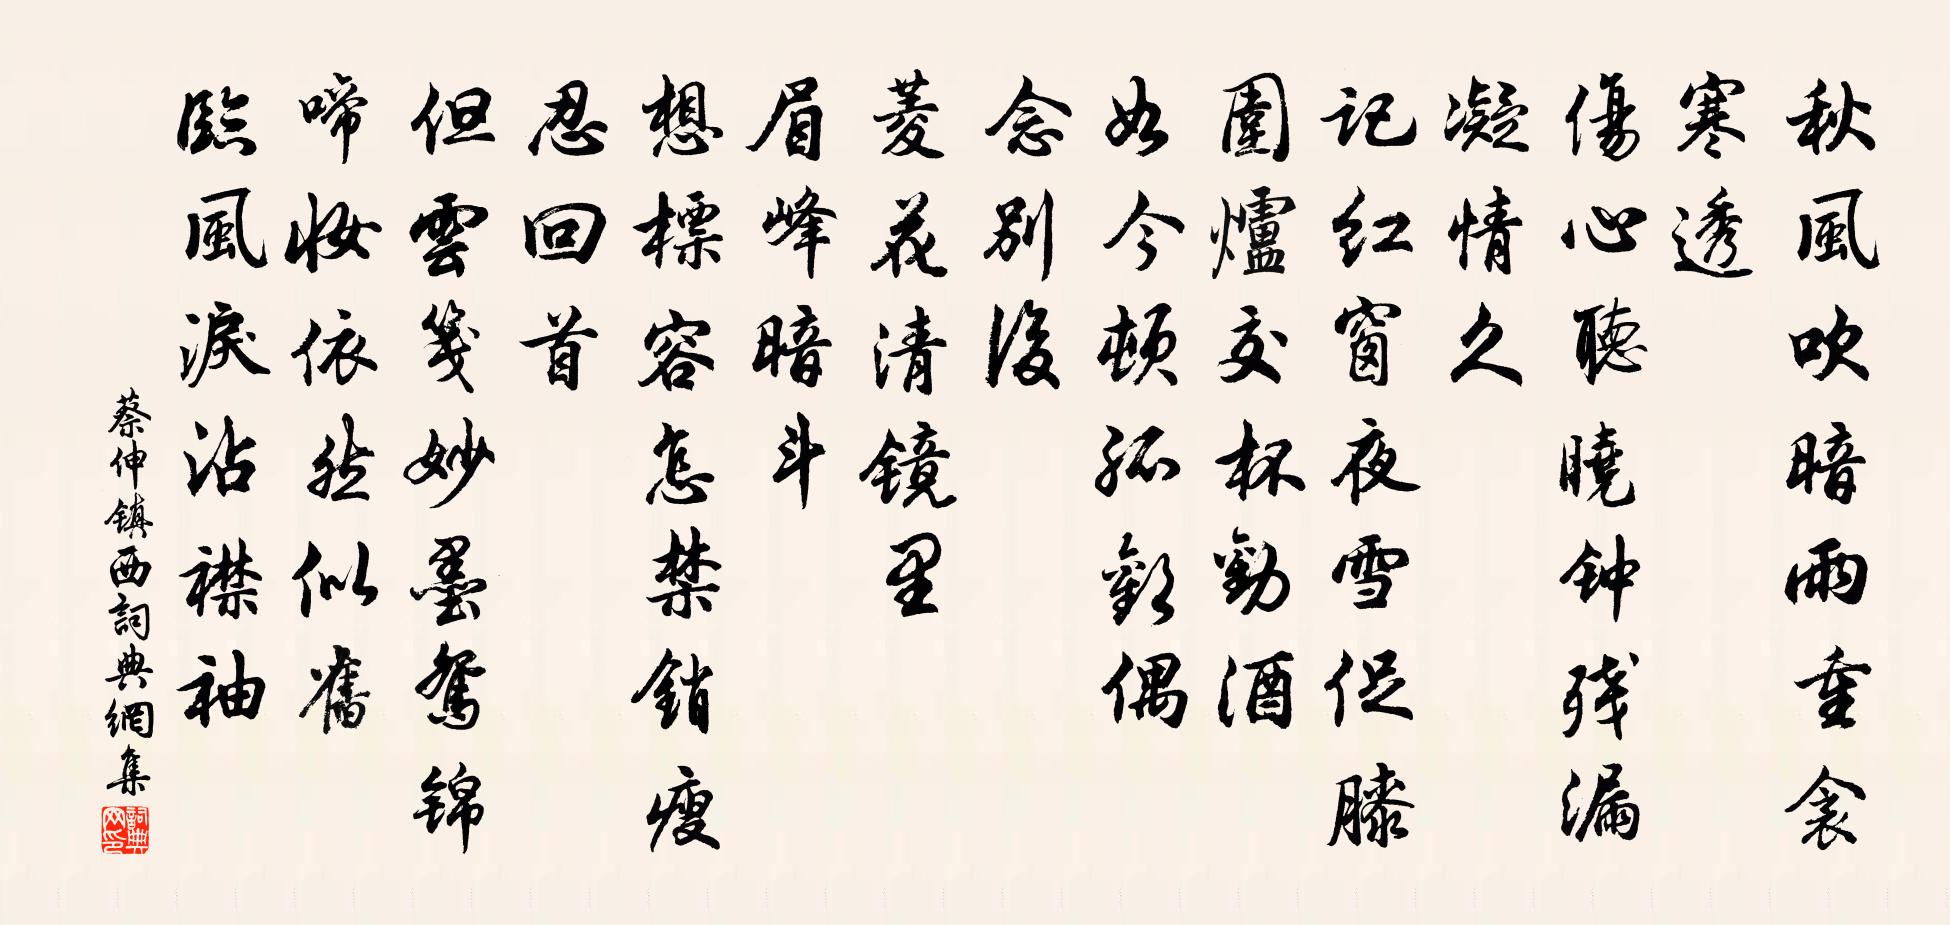 秋風吹暗雨重衾
寒透
傷心聽曉钟残漏
凝情久
記红窗夜雪促膝
圍爐交杯勸酒
如今顿孤歡偶
念别後
菱花清镜里
眉峰暗斗
想標容怎禁銷瘦
忍回首
但雲箋妙墨鸳锦
啼妝依然似舊
臨風淚沾襟袖
蔡伸鎮西詞典網集
詞典网印